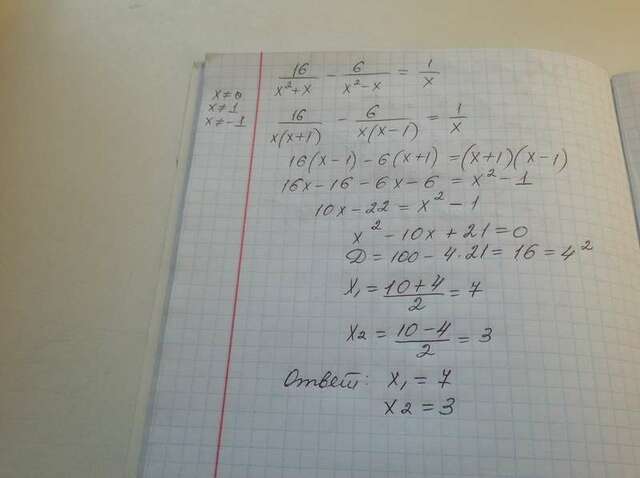 16/(x²+x) − 6/(x²−x) = 1/x
x ≠ 0
x ≠ 1
x ≠ −1
16/(x(x+1)) − 6/(x(x−1)) = 1/x
16(x−1) − 6(x+1) = (x+1)(x−1)
16x − 16 − 6x − 6 = x² − 1
10x − 22 = x² − 1
x² − 10x + 21 = 0
D = 100 − 4·21 = 16 = 4²
x₁ = (10+4)/2 = 7
x₂ = (10−4)/2 = 3
Ответ: x₁ = 7
x₂ = 3